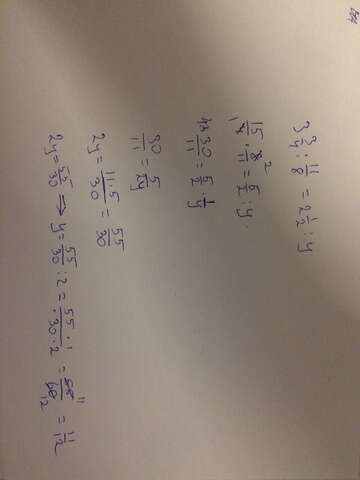 3 3/4 : 11/8 = 2 1/2 : y
15/4 · 8/11 = 5/2 : y
1 2
30/11 = 5/2 · 1/y
30/11 = 5/2y
2y = 11·5/30 = 55/30
2y = 55/30 ⇒ y = 55/30 : 2 = 55·1/30·2 = 55/60 = 11/12
11
12